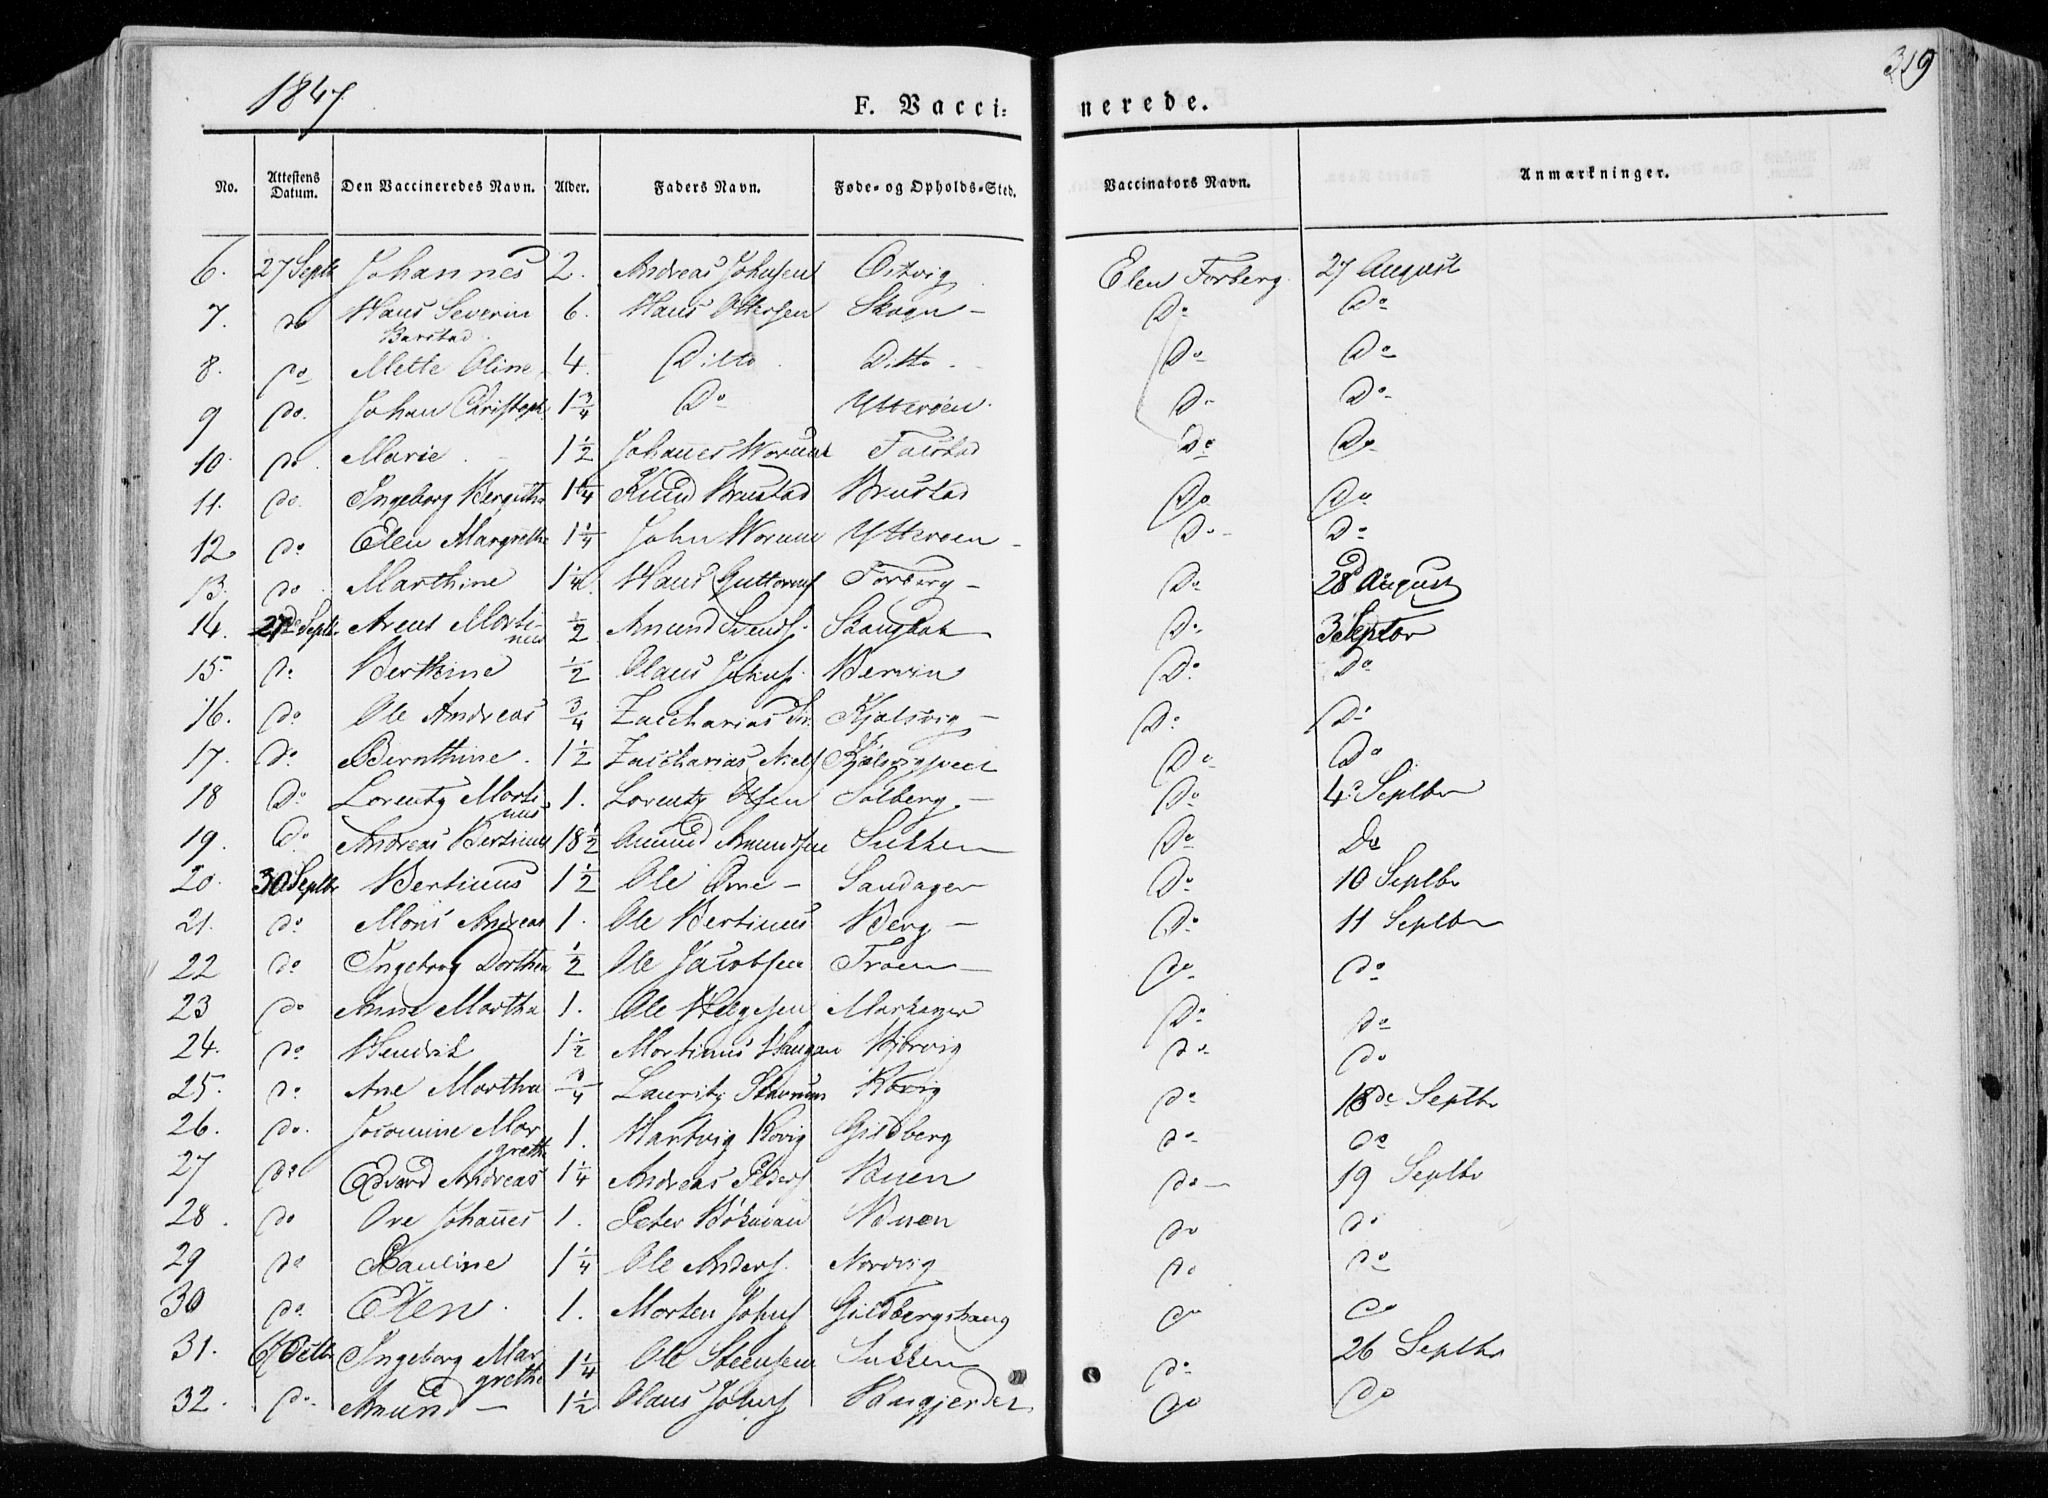 1847
319
F. Vacci: nerede.
No. Attestens Datum. Den Vaccineredes Navn. Alder. Faders Navn. Føde- og Opholds-Sted. Vaccinators Navn. Anmærkninger.
6. 27 Septb Johannes 2. Andreas Johnsen Østvig Elen Forberg 27 August
7. do Hans Severin 6. Hans Ottersen Skogn - Do Do
Barstad
8. do Mette Oline 4. Ditto Ditto - Do Do
9 do. Johan Christoph 1 3/4 Do Ytterøen Do Do
10. do Marie 1 1/2 Johannes Do Do
11. do. Ingeborg Bergitha 1 1/4 Knud Brustad Brustad Do Do
12 do Elen Margrethe 1 1/4 John Ytterøen - Do Do
13. do Marthine 1 1/4 Hans Guttormsf Forberg - Do 28 August
14. 27de Septb. Arent Morti- 1/2 Amund Svendsf. Do 3 Septbr
nus
15. do Berthine 1/2 Olaus Johnsf. Do Do
16. do Ole Andreas 3/4 Zaccharias Kjølsvig - Do Do
17. do Bernthine. 1 1/2 Zaccharias Nielsf Do Do
18 Do Lorentz Morti- 1. Lorentz Olsen Solberg - Do 4. Septbr
nus
19. do Andreas Bertinus 18 1/2 Amund Amundsen Sukken Do Do
20. 30 Septbr Bertinus 1 1/2 Ole Arne - Sandager Do 10 Septbr
21. do Mons Andreas 1. Ole Bertinus Berg - Do 11 Septbr
22 do Ingeborg Dorthea 1/2 Ole Jacobsen Troen - Do do
23 do Anne Martha 1. Ole Helgesen Markager Do do
24. do Hendrik 1 1/2 Martinus Haugan do do
25. do Ane Martha 3/4 Lauritz do 18de Septbr
26. do. Jocomine Mar 1. Hartvig Gildberg do do
grethe
27 do Edvard Andreas 1 1/4 Andreas Pedersf do - 19 Septbr
28. do Ove Johannes 1. Peter do do
29 do Pauline 1 1/4 Ole Andersf. Nordvig do do
30 do Elen. 1. Morten Johnsf Gildbergshaug do do
31. Octb Ingeborg Mar 1 1/4 Ole Steensen Sukken do 26 Septbr
grethe
32. do Amund - 1 1/2 Olaus Johnsf do do